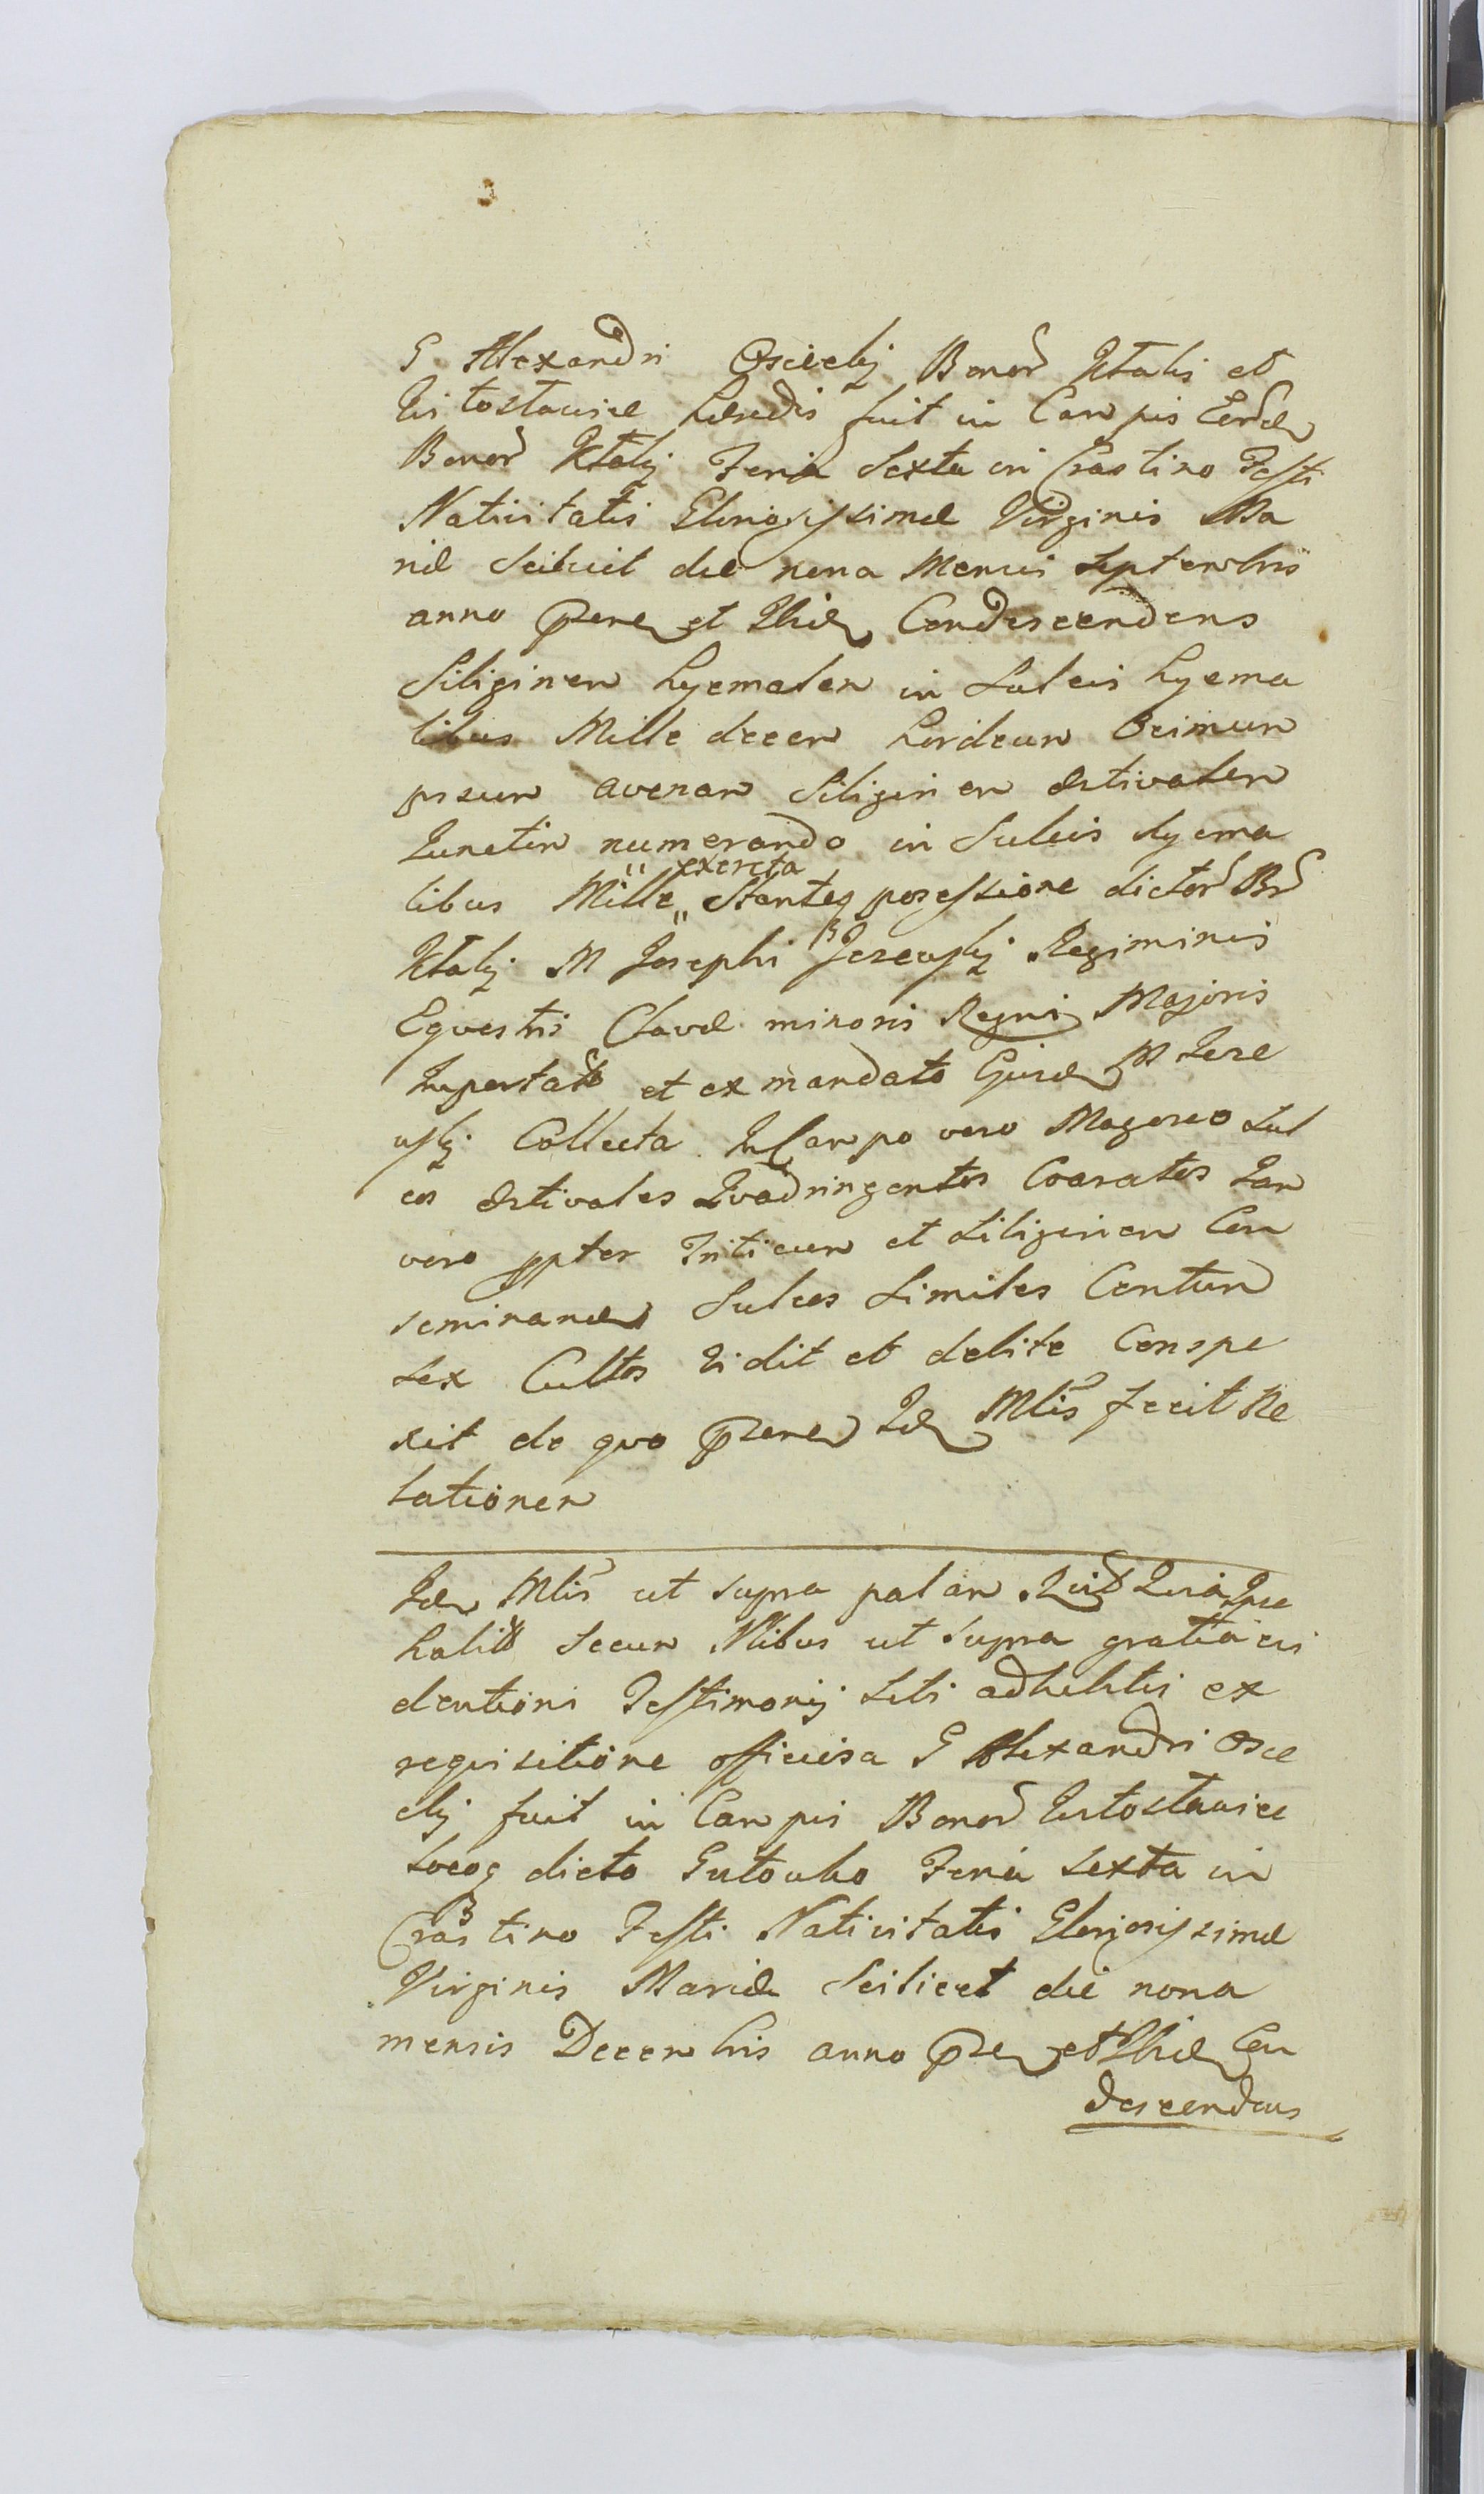 G Alexandri Osieckij Bonor Ktalij et
Krtostawice hæredis fuit in Campis Eorde
Bonor Ktalij Feria Sexta in Crastino Festi
Nativitatis Gloriosissimæ Virginis Ma
riæ Scilicet die nona Mensis Septembris
anno præne et Ibid Condescendens
Siliginem hyemalem in Sulcis hyema
libus Mille decem hordeum Ocimum
pisum avenam Siliginem æstivalem
Junctim numerando in Sulcis hyema
exereta
libus Mille Stanteq possessione dictor Br
Ktalij M Josephi Jezewskij Regiminis
Equestris Clavæ minoris Regni Majoris
et ex mandato Ejusd M Jeze
wskij Collecta In Campo vero Magereo Sul
cos æstivales Quadringentos Coaratos Jam
vero ppter Triticum et Siliginem Con
seminand Sulcos Similes Centum
Sex Cultos Vidit et debite Conspe
xit de quo præne Id Mlis fecit Re
lationem
Id Mlis ut supra palam Quia Ipse
habitis Secum Nlibus ut supra gratia evi
dentioris Testimonij Sibi adhibitis ex
requisitione officiosa G Alexandri Osie
ckij fuit in Campis Bonor Krtostawice
Locoq dicto Gutowko Feria Sexta in
Crastino Festi Nativitatis Gloriosissimæ
Virginis Mariæ Scilicet die nona
mensis Decembris anno præ et Ibid Con
descendens